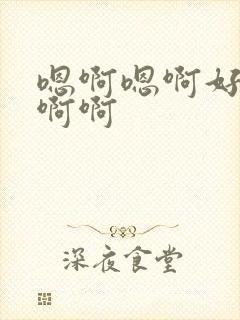 嗯啊嗯啊好
啊啊
深夜食堂